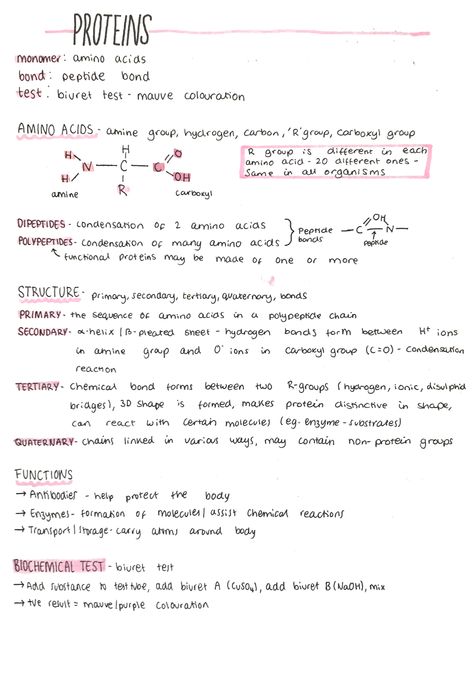 PROTEINS
monomer: amino acids
bond: peptide bond
test: biuret test - mauve colouration
AMINO ACIDS - amine group, hydrogen, carbon, 'R' group, carboxyl group
R group is different in each
amino acid - 20 different ones -
same in all organisms
H H O
N - C - C
H R OH
amine carboxyl
DIPEPTIDES - condensation of 2 amino acids
POLYPEPTIDES - condensation of many amino acids
} Peptide bonds
OH
- C - N -
peptide
functional proteins may be made of one or more
STRUCTURE - primary, secondary, tertiary, quaternary, bonds
PRIMARY - the sequence of amino acids in a polypeptide chain
SECONDARY - α-helix / β-pleated sheet - hydrogen bonds form between H⁺ ions
in amine group and O⁻ ions in carboxyl group (C=O) - condensation
reaction
TERTIARY - chemical bond forms between two R-groups (hydrogen, ionic, disulphid
bridges), 3D shape is formed, makes protein distinctive in shape,
can react with certain molecules (eg. enzyme - substrates)
QUATERNARY - chains linked in various ways, may contain non-protein groups
FUNCTIONS
→ Antibodies - help protect the body
→ Enzymes - formation of molecules / assist chemical reactions
→ Transport / storage - carry atoms around body
BIOCHEMICAL TEST - biuret test
→ Add substance to test tube, add biuret A (CuSO₄), add biuret B (NaOH), mix
→ +ve result = mauve/purple colouration